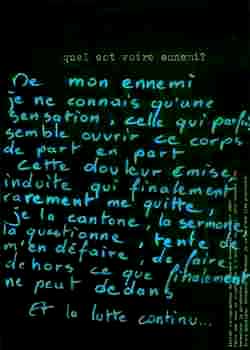 quel est votre ennemi?
De mon ennemi
je ne connais qu'une
sensation, celle qui parfois
semble ouvrir ce corps
de part en part
Cette douleur émise,
induite qui finalement
rarement me quitte,
je la cantone, la sermone
la questionne, tente de
m'en défaire, de faire
dehors ce que finalement
ne peut dedans
Et la lutte continu...